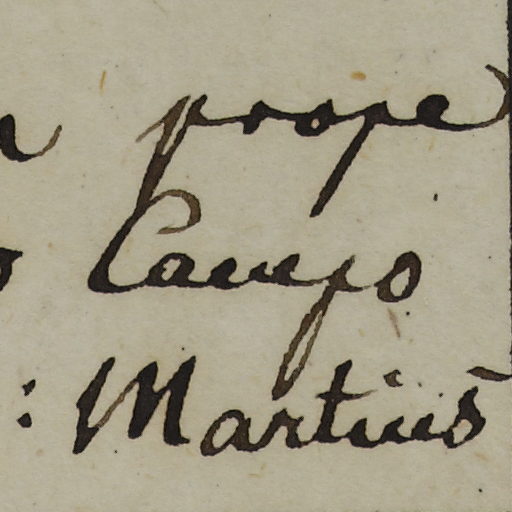 prope
Campo
: Martius